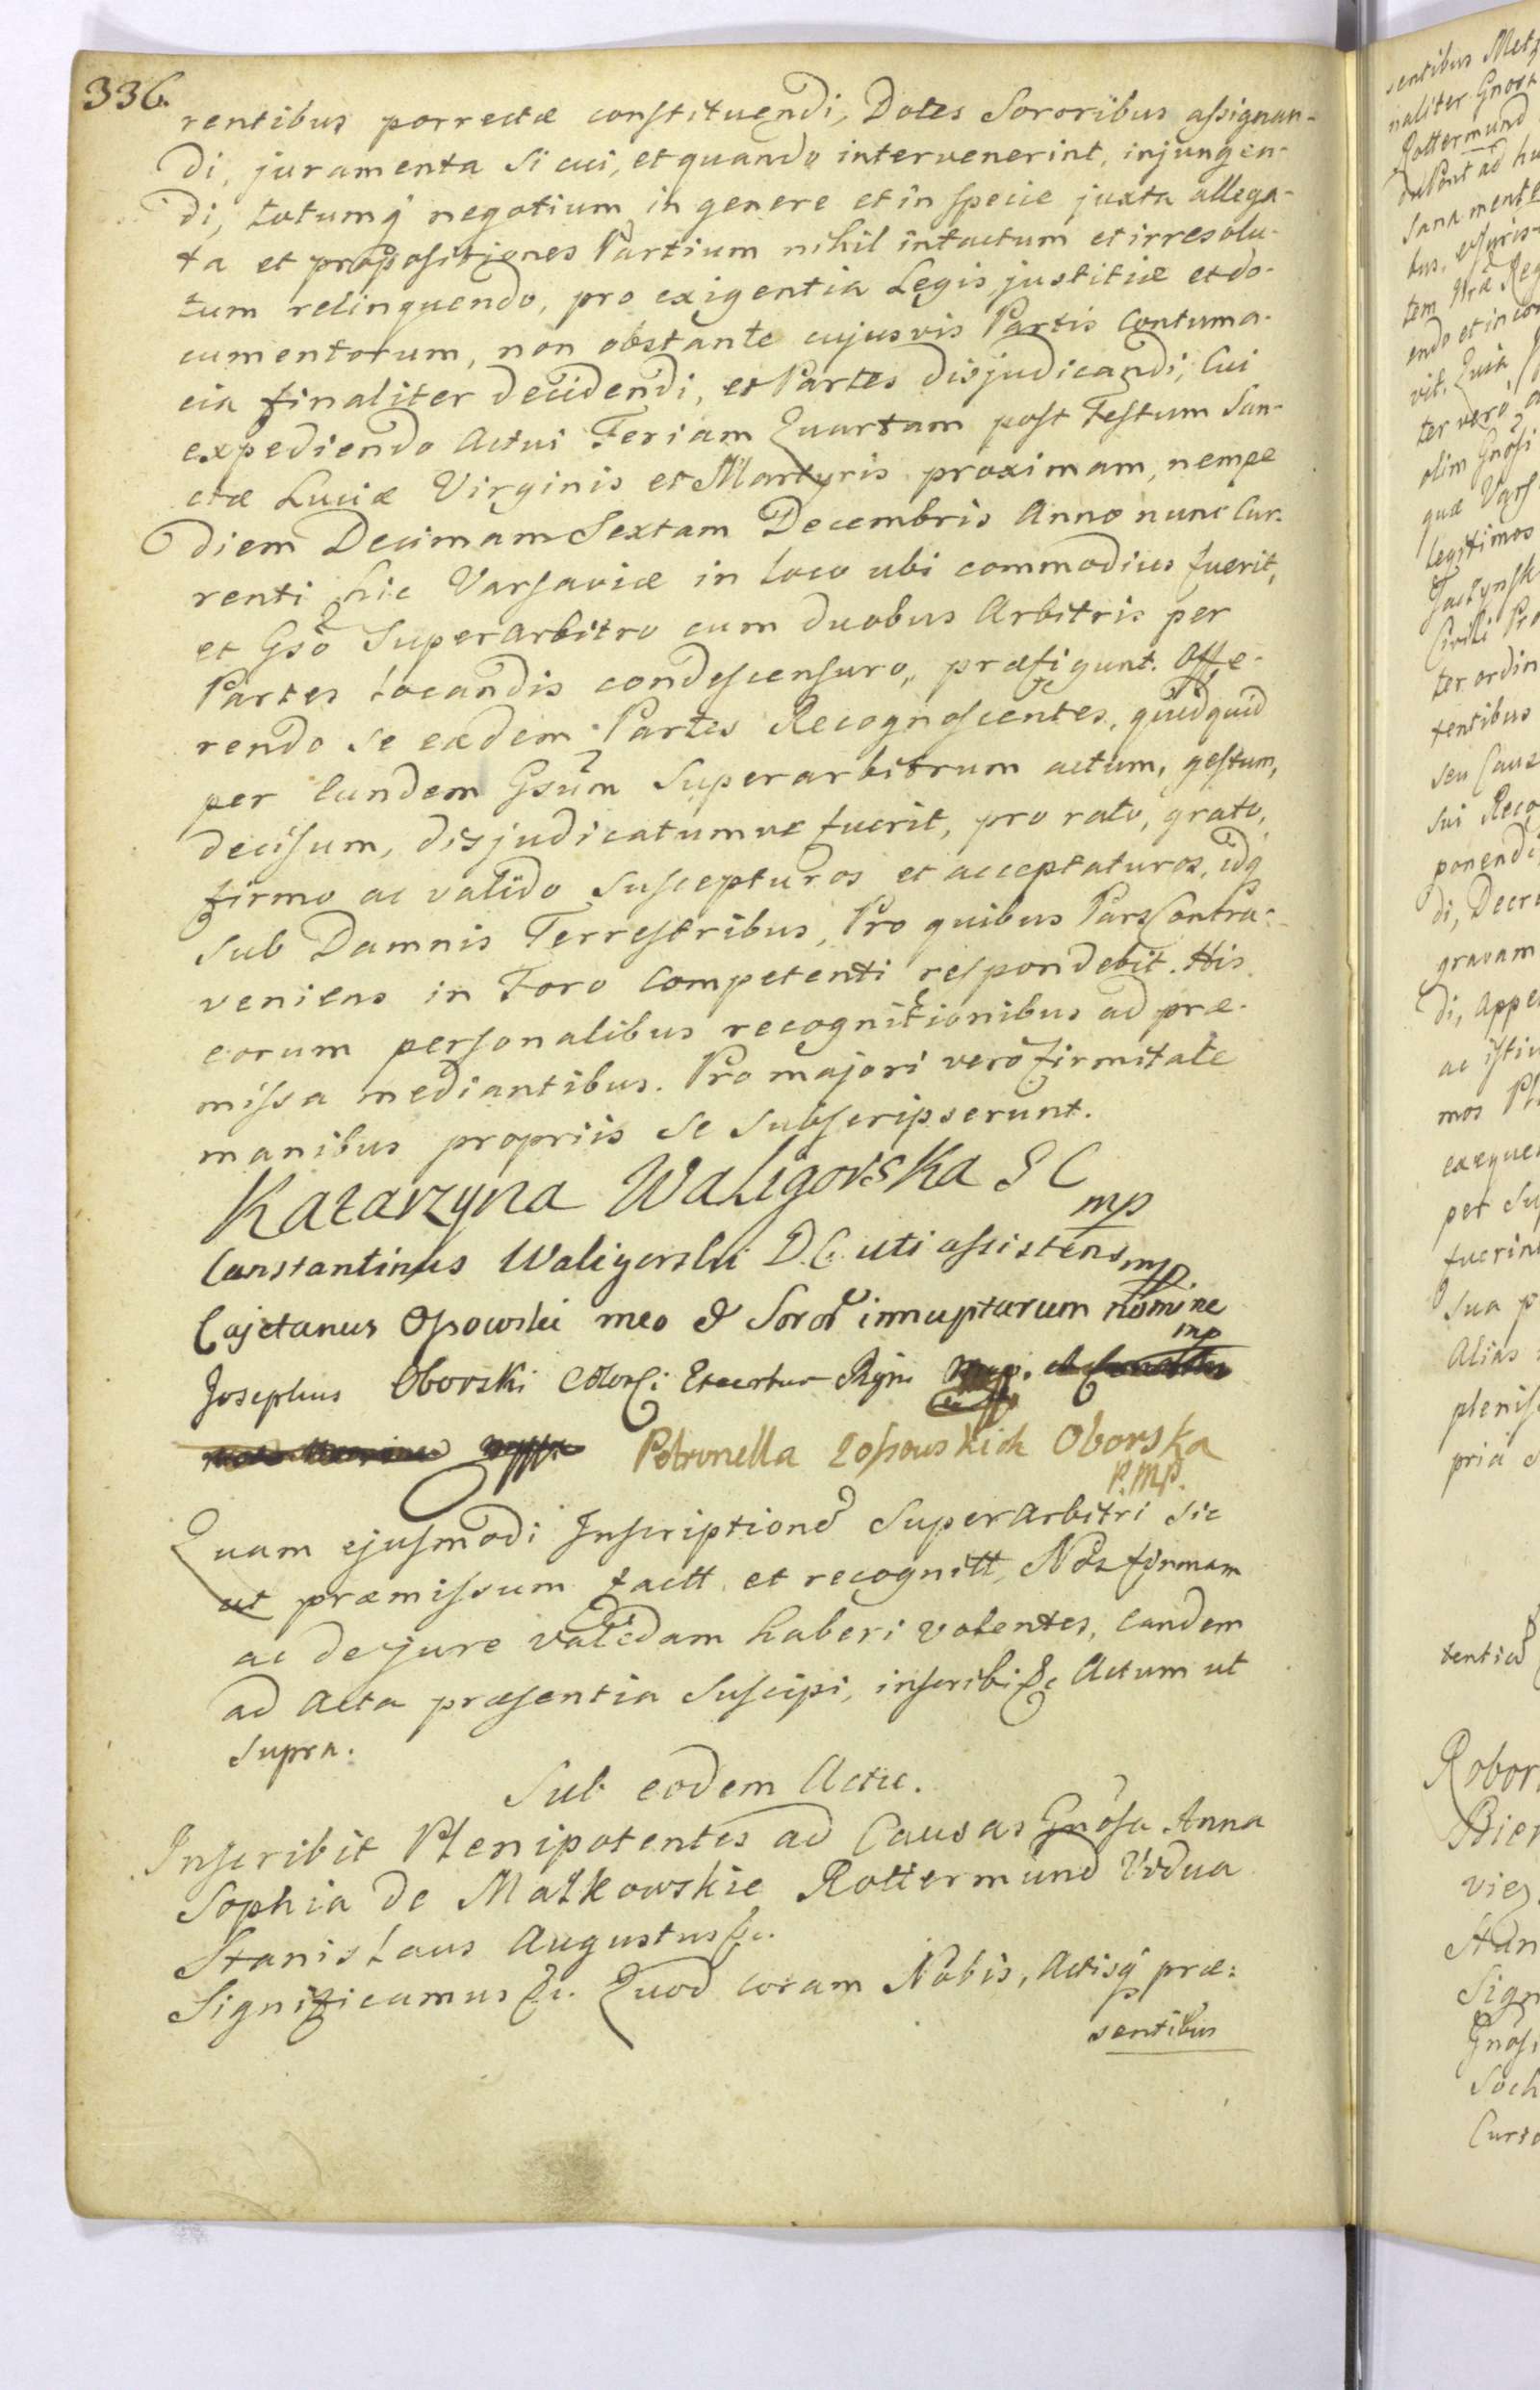 336.
rentibus porrectæ constituendi, Dotes Sororibus assignan-
di, juramenta si cui, et quando intervenerint, injungen-
di, totumq̃ negotium in genere et in specie juxta allega-
ta et propositiones Partium nihil intactum et irresolu-
tum relinquendo, pro exigentia Legis justitiæ et do-
cumentorum, non obstante cujusvis Partis Contuma-
cia finaliter decidendi, et Partes disjudicandi, Cui
expediendo Actui Feriam Quartam post Festum San-
ctæ Luciæ Virginis et Martyris proximam, nempe
diem Decimam Sextam Decembris Anno nunc Cur-
renti hic Varsaviæ in loco ubi commodius fuerit,
et Gsõ Superarbitro cum duobus Arbitris per
Partes locandis condescensuro, præfigunt. Offe-
rendo se eædem Partes Recognoscentes, quidquid
per eundem Gsũm Superarbitrum actum, gestum,
decisum, disjudicatumve fuerit, pro rato, grato,
firmo ac valido suscepturos et acceptaturos, idq̃
sub Damnis Terrestribus, Pro quibus Pars Contra-
veniens in Foro Competenti respondebit. His
eorum personalibus recognitionibus ad præ-
missa mediantibus. Pro majori vero firmitate
manibus propriis se subscripserunt.
Katarzyna Waligorska S C
mp
Constantinus Waligorski D. C. uti assistens mp
Cajetanus Ossowski meo & Soror innuptarum nomine
mp
Josephus Oborski
Petronella zossowskich Oborska
P. mp.
Quam ejusmodi Inscriptione Superarbitri sic
ut præmissum factt et recognitt, Nos firmam
ac de jure validam haberi volentes, eandem
ad Acta præsentia suscipi, inscribi &c Actum ut
supra.
Sub eodem Actu.
Inscribit Plenipotentes ad Causas Gnõsa Anna
Sophia de Malkowskie Rottermund Vidua
Stanislaus Augustus &c.
Significamus &c. Quod coram Nobis, Actisq̃ præ:
sentibus
sentibus
naliter
Rottermund
sana mente
endo et in
vit. Quia
ter vero
olim Gnõsi
quæ
legitimos
ter ordin
tentibus
seu Caus
sui Reco
ponendi
di, Decre
gravam
di, Appe
mos
per Su
fuerin
sua p
Alias
plenis
pria
tentia
Robor
Stan
Sign
Gnõsi
Soch